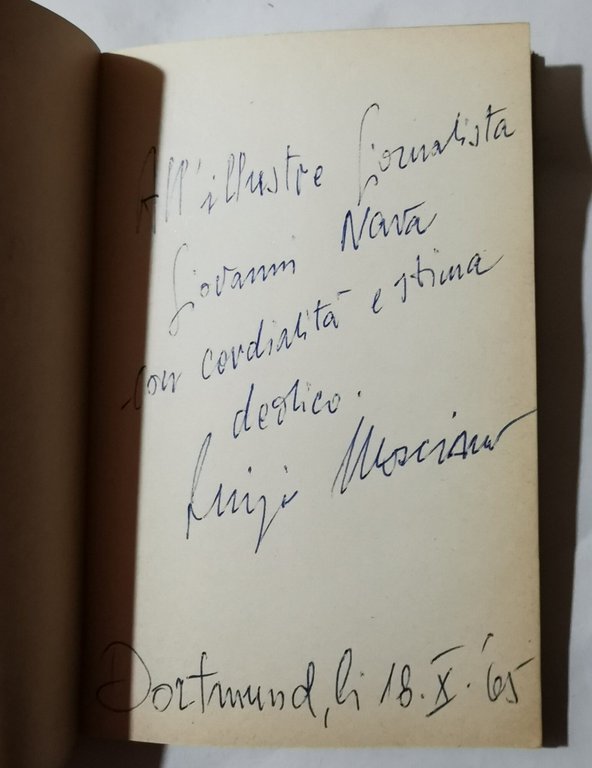 All'illustre Giornalista
Giovanni Nava
con cordialità e stima
dedico.
Luigi Mosciano
Dortmund, li 18.X.'65